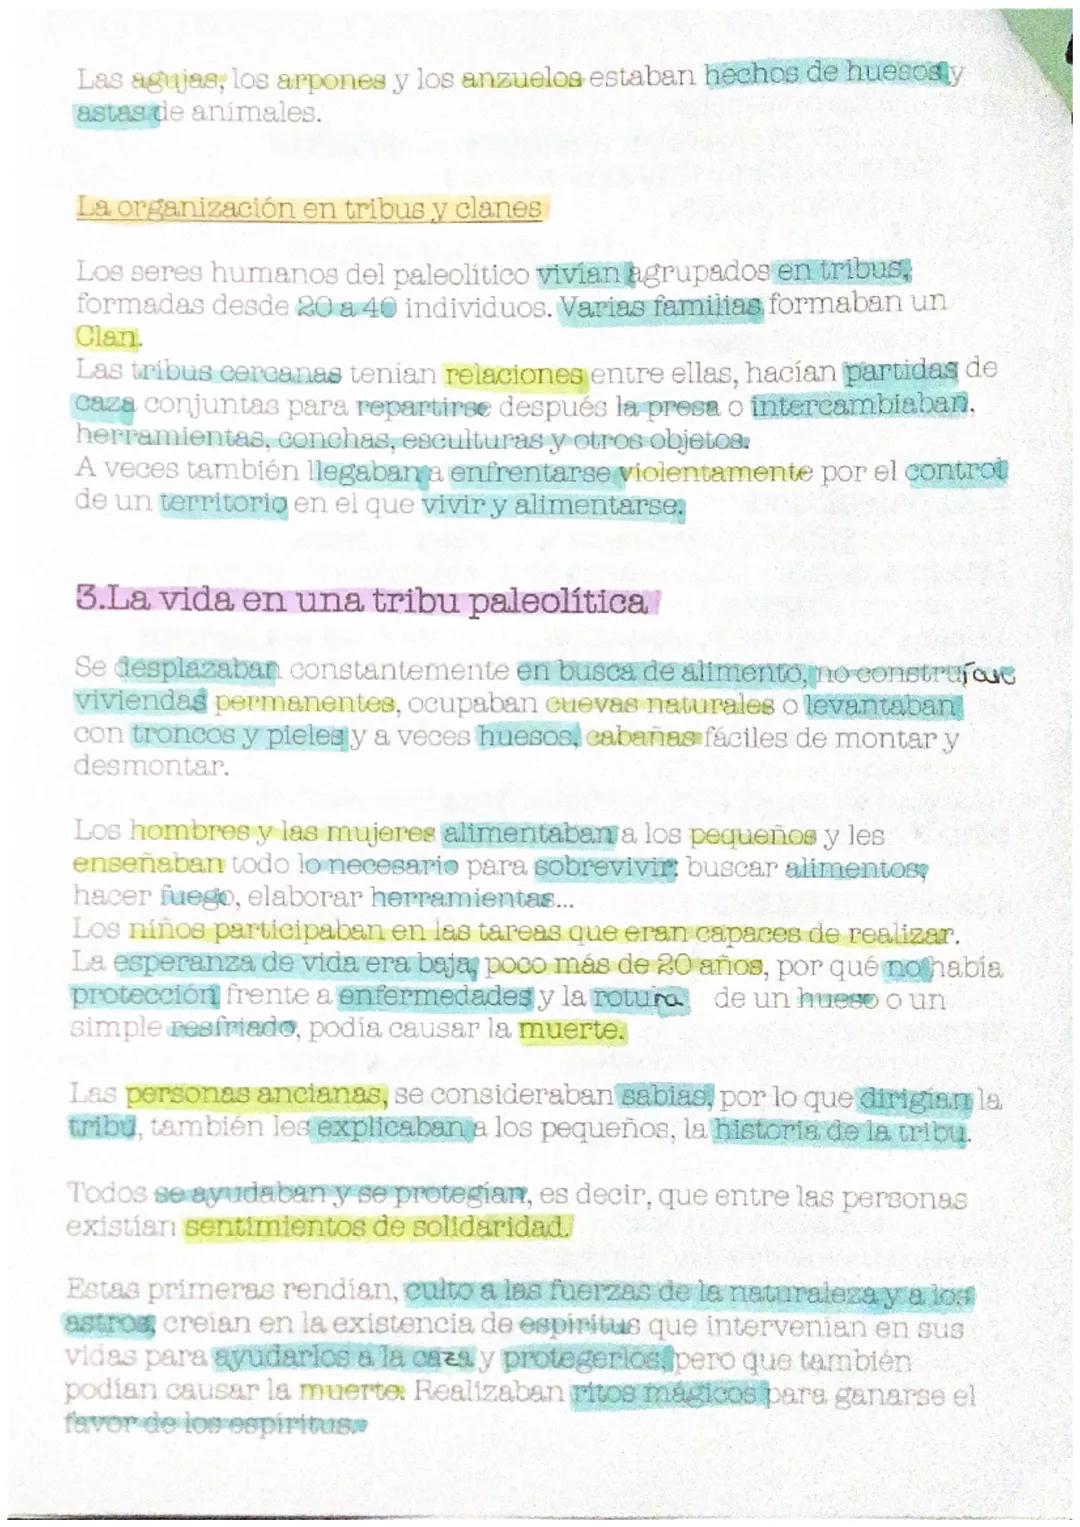 Las agujas, los arpones y los anzuelos estaban hechos de huesos y
astas de animales.
La organización en tribus y clanes
Los seres humanos del paleolítico vivían agrupados en tribus,
formadas desde 20 a 40 individuos. Varias familias formaban un
Clan.
Las tribus cercanas tenían relaciones entre ellas, hacían partidas de
caza conjuntas para repartirse después la presa o intercambiaban,
herramientas, conchas, esculturas y otros objetos.
A veces también llegaban a enfrentarse violentamente por el control
de un territorio en el que vivir y alimentarse.
3.La vida en una tribu paleolítica
Se desplazaban constantemente en busca de alimento, no construían
viviendas permanentes, ocupaban cuevas naturales o levantaban
con troncos y pieles y a veces huesos, cabañas fáciles de montar y
desmontar.
Los hombres y las mujeres alimentaban a los pequeños y les
enseñaban todo lo necesario para sobrevivir: buscar alimentos,
hacer fuego, elaborar herramientas...
Los niños participaban en las tareas que eran capaces de realizar.
La esperanza de vida era baja, poco más de 20 años, por qué no había
protección frente a enfermedades y la rotura de un hueso o un
simple resfriado, podía causar la muerte.
Las personas ancianas, se consideraban sabias, por lo que dirigían la
tribu, también les explicaban a los pequeños, la historia de la tribu.
Todos se ayudaban y se protegían, es decir, que entre las personas
existían sentimientos de solidaridad.
Estas primeras rendían, culto a las fuerzas de la naturaleza y a los
astros, creían en la existencia de espíritus que intervenían en sus
vidas para ayudarlos a la caza y protegerlos, pero que también
podían causar la muerte. Realizaban ritos mágicos para ganarse el
favor de los espíritus.